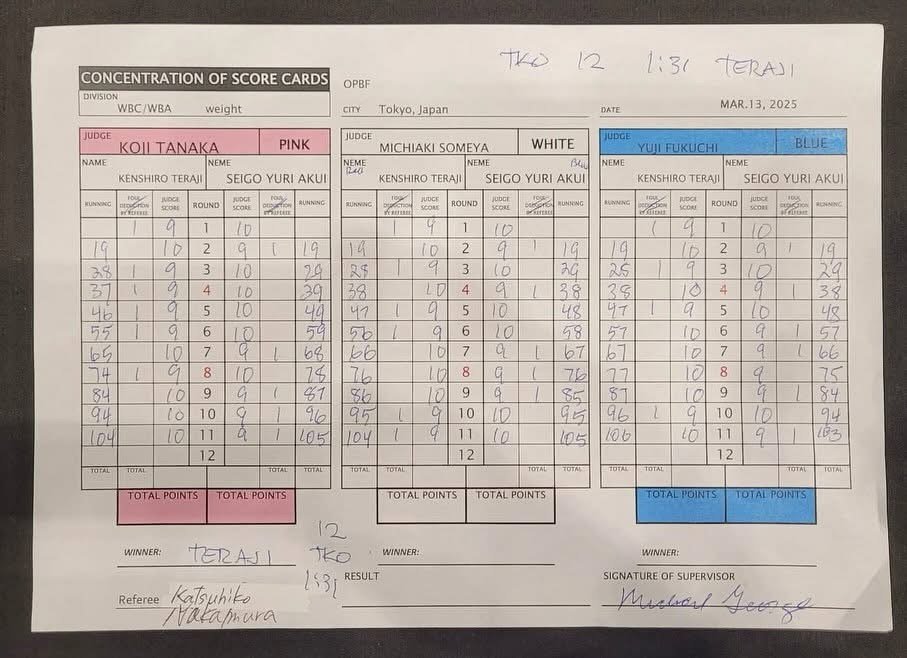 TKO 12 1:31 TERAJI
CONCENTRATION OF SCORE CARDS
OPBF
DIVISION
WBC/WBA weight
CITY Tokyo, Japan
DATE MAR.13, 2025
JUDGE KOJI TANAKA PINK JUDGE MICHIAKI SOMEYA WHITE JUDGE YUJI FUKUCHI BLUE
NAME NEME NEME NEME Blue NEME NEME
KENSHIRO TERAJI SEIGO YURI AKUI KENSHIRO TERAJI SEIGO YURI AKUI KENSHIRO TERAJI SEIGO YURI AKUI
RUNNING FOUL DEDUCTION BY REFEREE JUDGE SCORE ROUND JUDGE SCORE FOUL DEDUCTION BY REFEREE RUNNING RUNNING FOUL DEDUCTION BY REFEREE JUDGE SCORE ROUND JUDGE SCORE FOUL DEDUCTION BY REFEREE RUNNING RUNNING FOUL DEDUCTION BY REFEREE JUDGE SCORE ROUND JUDGE SCORE FOUL DEDUCTION BY REFEREE RUNNING
1 9 1 10 1 9 1 10 1 9 1 10
19 10 2 9 1 19 19 10 2 9 1 19 19 10 2 9 1 19
28 1 9 3 10 29 28 1 9 3 10 29 28 1 9 3 10 29
37 1 9 4 10 39 38 10 4 9 1 38 38 10 4 9 1 38
46 1 9 5 10 49 47 1 9 5 10 48 47 1 9 5 10 48
55 1 9 6 10 59 56 1 9 6 10 58 57 10 6 9 1 57
65 10 7 9 1 68 66 10 7 9 1 67 67 10 7 9 1 66
74 1 9 8 10 78 76 10 8 9 1 76 77 10 8 9 75
84 10 9 9 1 87 86 10 9 9 1 85 87 10 9 9 1 84
94 10 10 9 1 96 95 1 9 10 10 95 96 1 9 10 10 94
104 10 11 9 1 105 104 1 9 11 10 105 106 10 11 9 1 103
12 12 12
TOTAL TOTAL TOTAL TOTAL TOTAL TOTAL TOTAL TOTAL TOTAL TOTAL TOTAL TOTAL
TOTAL POINTS TOTAL POINTS TOTAL POINTS TOTAL POINTS TOTAL POINTS TOTAL POINTS
WINNER: TERAJI
12
TKO
1:31
WINNER:
WINNER:
RESULT
SIGNATURE OF SUPERVISOR
Referee Katsuhiko
Nakamura
Michael George